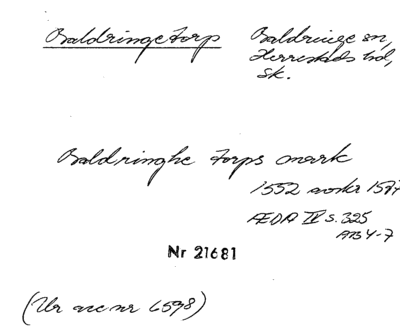 Baldringetorp Baldringe sn,
Herrestads hd,
Sk.
Baldringhe torps mark
1552 avskr 1587
ÆDA IV s. 325
ATB 4-7
Nr 21681
(Ur acc nr 6598)